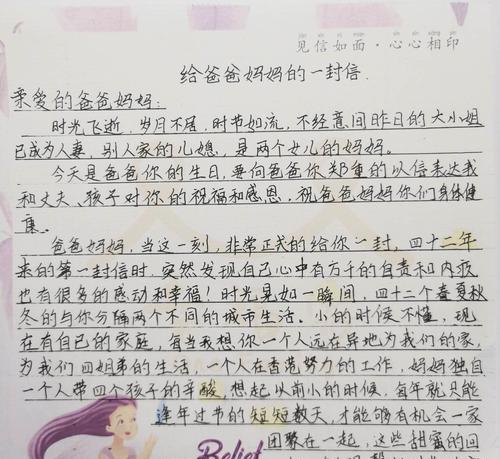 见信如面·心心相印
给爸爸妈妈的一封信.
亲爱的爸爸妈妈:
时光飞逝,岁月不居,时节如流,不经意间昨日的大小姐
已成为人妻,别人家的儿媳,是两个女儿的妈妈。
今天是爸爸你的生日,要向爸爸你郑重的以信表达我
和丈夫、孩子对你的祝福和感恩,祝爸爸妈妈你们身体健
康。
爸爸妈妈,当这一刻,非常正式的给你一封,四十二年
来的第一封信时,突然发现自己心中有万千的自责和内疚
也有很多的感动和幸福!时光晃如一瞬间,四十二个春夏秋
冬的与你分隔两个不同的城市生活。小的时候不懂,现
在有自己的家庭,每当我想你一个人远在异地为我们的家,
为我们四姐弟的生活,一个人在香港努力的工作,妈妈独自
一个人带四个孩子的辛酸,想起以前小的时候,每年就只能
逢年过节的短短数天,才能够有机会一家
团聚在一起,这些甜蜜的回
Belief